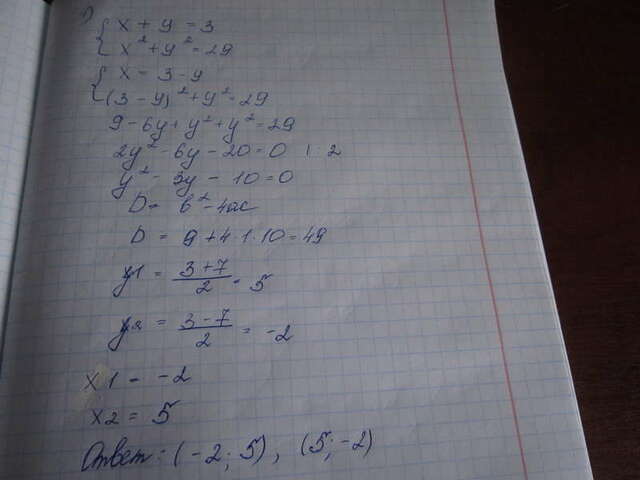 1)
{ x + y = 3
{ x² + y² = 29
{ x = 3 - y
{ (3 - y)² + y² = 29
9 - 6y + y² + y² = 29
2y² - 6y - 20 = 0 | : 2
y² - 3y - 10 = 0
D = b² - 4ac
D = 9 + 4 · 1 · 10 = 49
y1 = (3 + 7)/2 = 5
y2 = (3 - 7)/2 = -2
x1 = -2
x2 = 5
Ответ: (-2; 5), (5; -2)